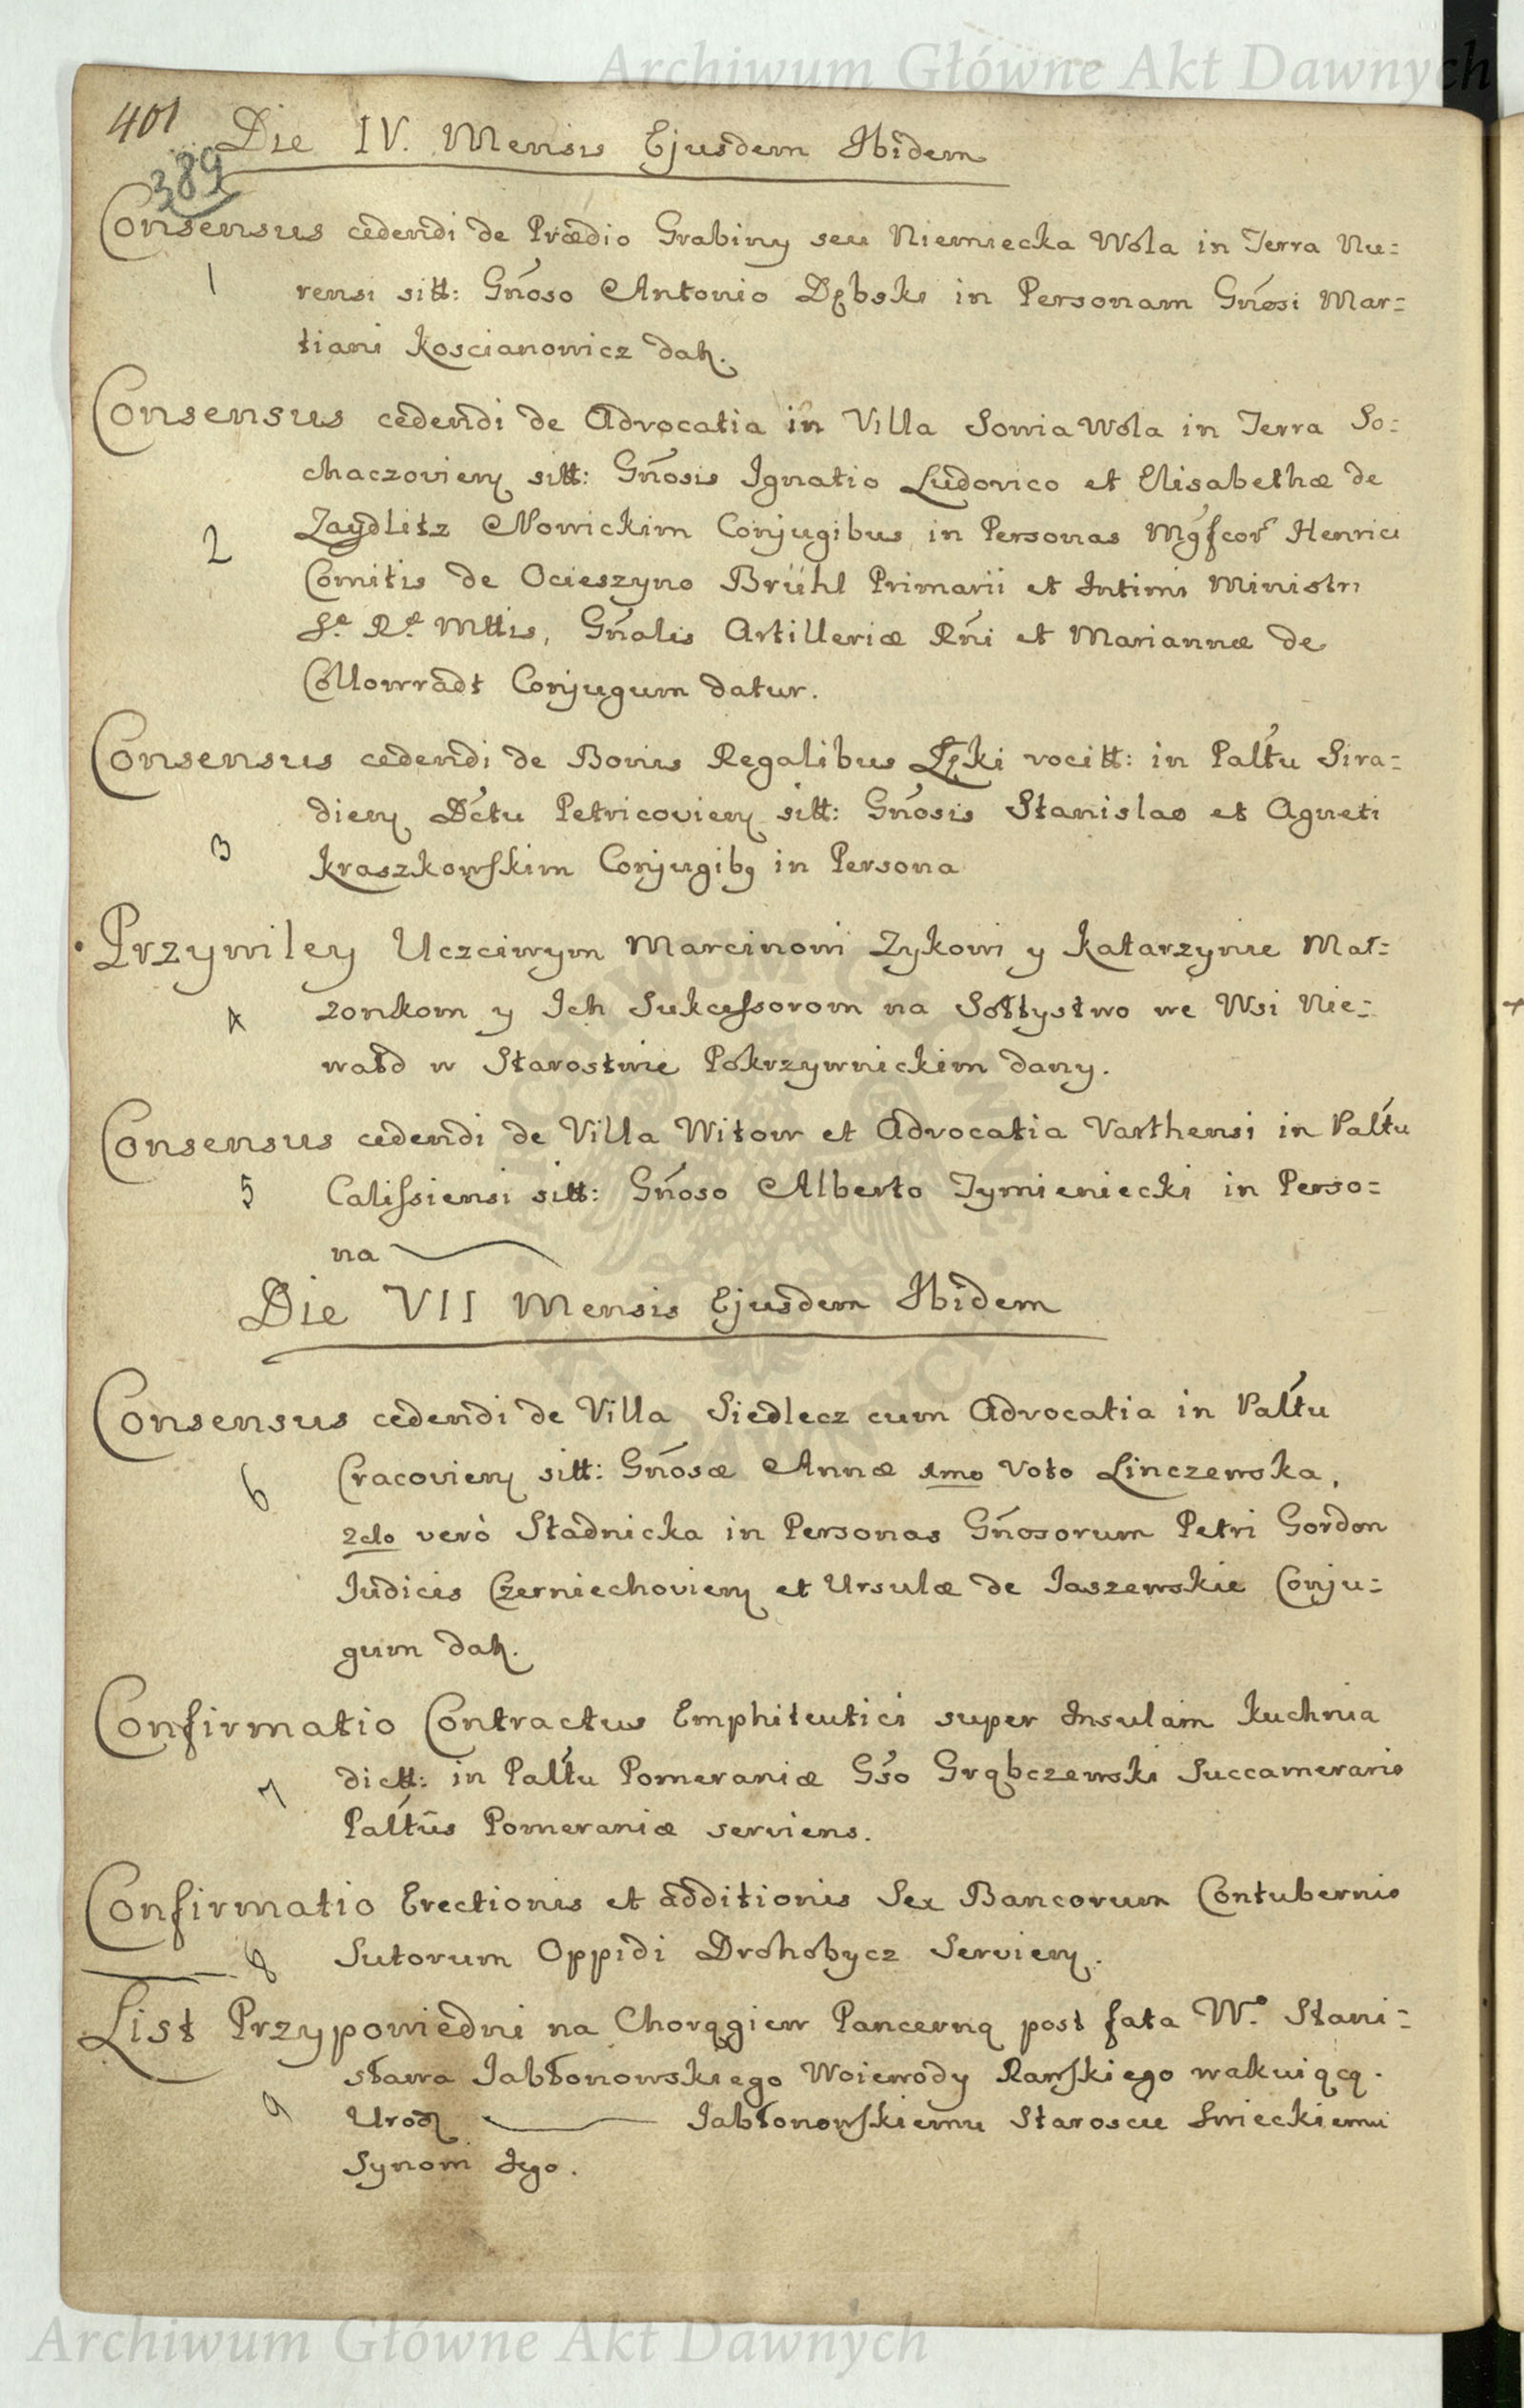 Archiwum Główne Akt Dawnych
401
389
Die IV. Mensis Ejusdem Ibidem
Consensus cedendi de Prædio Grabiny seu Niemiecka Wola in Terra Nu=
1
rensi sitt: Gnoso Antonio Dębski in Personam Gnosi Mar=
tiani Koscianowicz dat.
Consensus cedendi de Advocatia in Villa Sowia Wola in Terra So=
chaczovien sitt: Gnosis Ignatio Ludovico et Elisabethæ de
2
Zaydlitz Nowickim Conjugibus in Personas Mgfcor Henrici
Comitis de Ocieszyno Brühl Primarii et Intimi Ministri
Sæ Ræ Mttis, Gnalis Artilleriæ Rni et Mariannæ de
Collowradt Conjugum datur.
Consensus cedendi de Bonis Regalibus Łęki vocitt: in Paltu Sira=
dien Dctu Petricovien sitt: Gnosis Stanislao et Agneti
3
Kraszkowskim Conjugibq in Persona
Przywiley Uczciwym Marcinowi Zykowi y Katarzynie Mał=
4
zonkom y Ich Sukcessorom na Sołtystwo we Wsi Nie=
wałd w Starostwie Pokrzywnickim dany.
Consensus cedendi de Villa Witow et Advocatia Varthensi in Paltu
5
Calissiensi sitt: Gnoso Alberto Tymieniecki in Perso=
na
Die VII Mensis Ejusdem Ibidem
Consensus cedendi de Villa Siedlecz cum Advocatia in Paltu
6
Cracovien sitt: Gnosæ Annæ 1mo Voto Linczewska,
2do verò Stadnicka in Personas Gnosorum Petri Gordon
Judicis Czerniechovien et Ursulæ de Jaszewskie Conju=
gum dat.
Confirmatio Contractus Emphiteutici super Insulam Kuchnia
7
dictt: in Paltu Pomeraniæ Gso Grąbczewski Succamerario
Paltûs Pomeraniæ serviens.
Confirmatio Erectionis et additionis Sex Bancorum Contubernio
8
Sutorum Oppidi Drohobycz Servien.
List Przypowiedni na Chorągiew Pancerną post fata Wo Stani=
9
sława Jabłonowskiego Woiewody Rawskiego wakuiącą.
Urod Jabłonowskiemu Staroscie Swieckiemu
Synom Jego.
Archiwum Główne Akt Dawnych